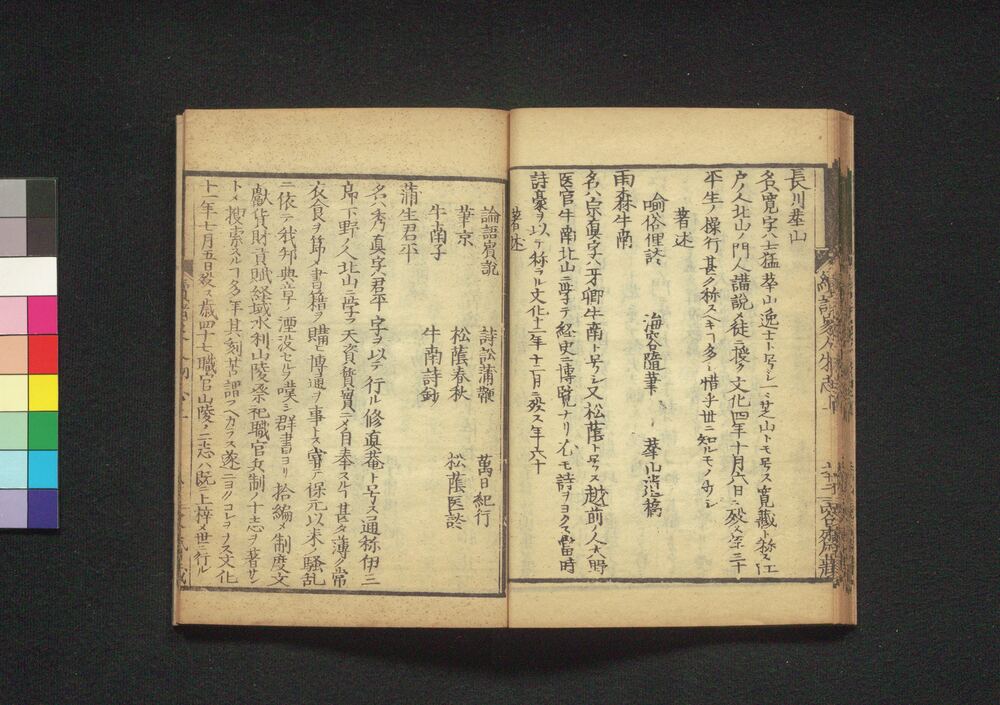 長川華山
名ハ寛字ハ士猛華山逸士ト号シ一ニ芝山トモ号ス寛藏ト称ス江
戸ノ人北山ノ門人講説シ徒ニ授ク文化四年十月六日ニ殁ス年三十
平生ノ操行甚タ称スヘキコ多シ惜乎世ニ知ルモノナシ
著述
喩俗俚談 海容隨筆 華山遺稿
雨森牛南
名ハ宗真字ハ牙卿牛南ト号シ又松蔭ト号ス越前ノ人大野
医官牛南北山ニ学テ経史ニ博覧ナリ尤モ詩ヲヨクス當時
詩豪ヲ以テ称ラル文化十二年十二月ニ殁ス年六十
著述
論語實説 詩訟蒲鞭 萬日紀行
華京 松蔭春秋
牛南子 牛南詩鈔 松蔭医談
蒲生君平
名ハ秀真字君平字ヲ以テ行ル修真菴ト号ス通称伊三
郎下野ノ人北山ニ学フ天資質實ニメ自奉スルコ甚タ薄ク常
衣食ヲ節メ書籍ヲ購ヒ博通ヲ事トス寧テ保元以来ノ騒乱
ニ依テ我邦典章ノ湮没セルヲ嘆シ群書ヨリ拾編メ制度文
獻貨財貢賦経域水利山陵祭祀職官兵制ノ十志ヲ著サン
トメ捜索スルコ多年其刻苦謂フヘカラス遂ニヨクコレヲナス文化
十一年七月五日殁ス歳四十七職官山陵ノ二志ハ既ニ上梓メ世ニ行ル